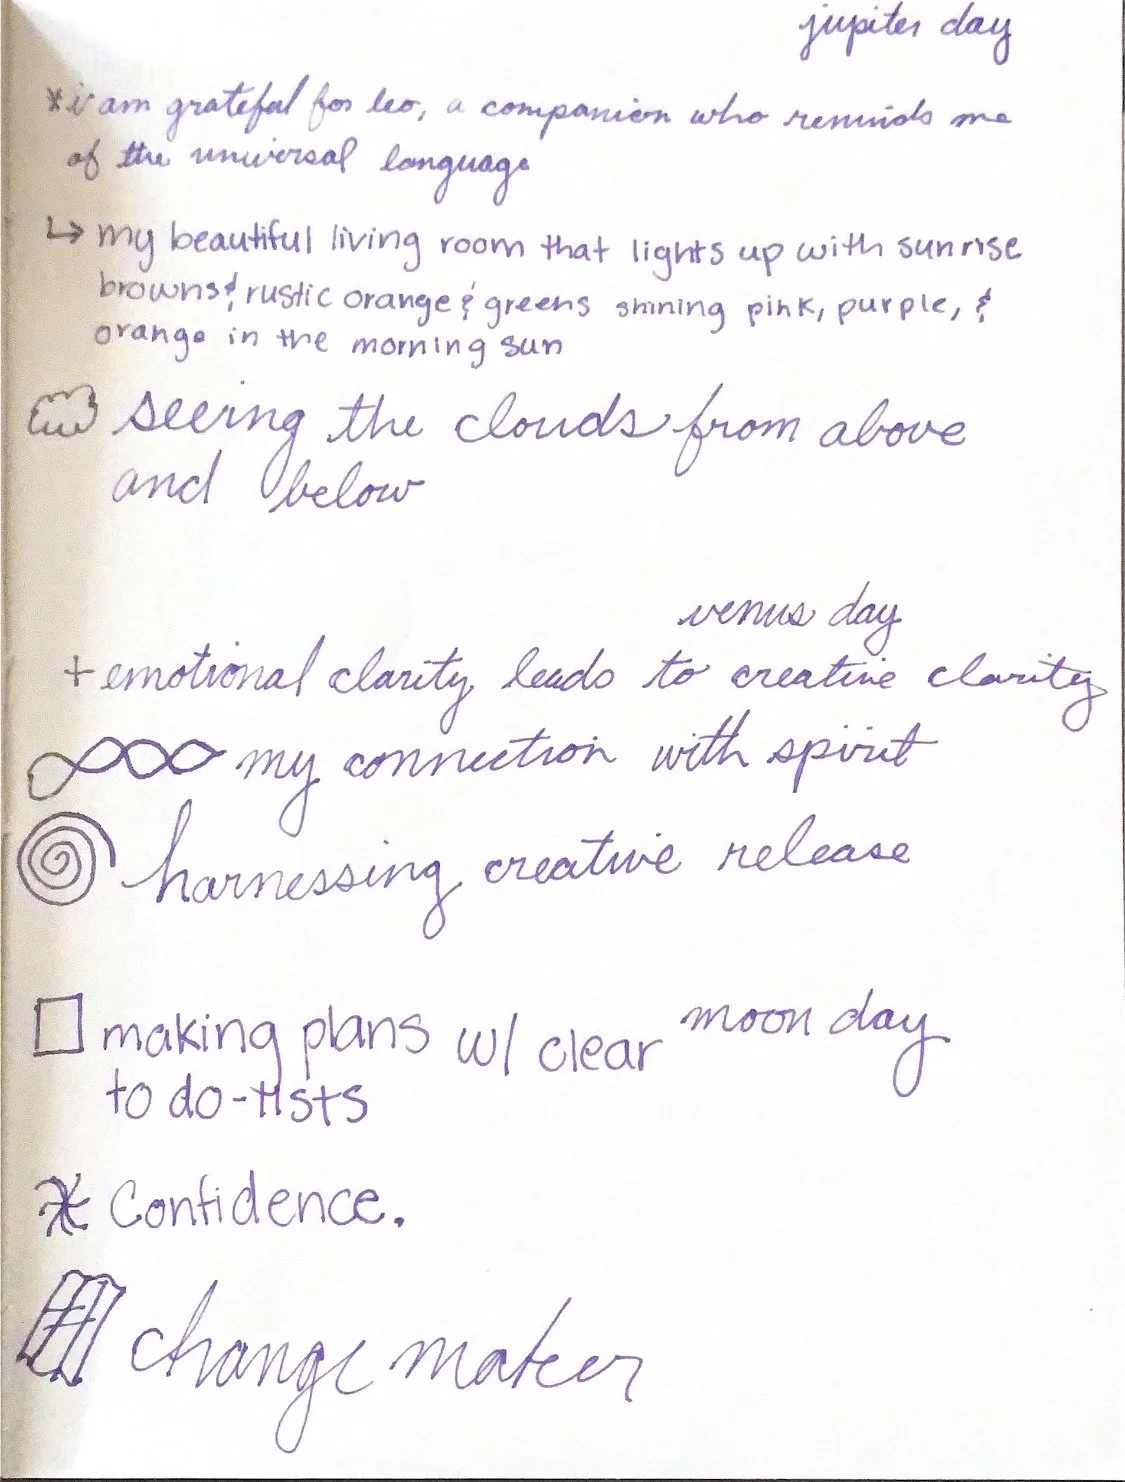 jupiter day
*i am grateful for leo, a companion who reminds me
of the universal language
↳ my beautiful living room that lights up with sunrise
browns & rustic orange & greens shining pink, purple, &
orange in the morning sun
seeing the clouds from above
and below
venus day
+ emotional clarity leads to creative clarity
my connection with spirit
harnessing creative release
moon day
making plans w/ clear
to do-lists
* Confidence.
change maker